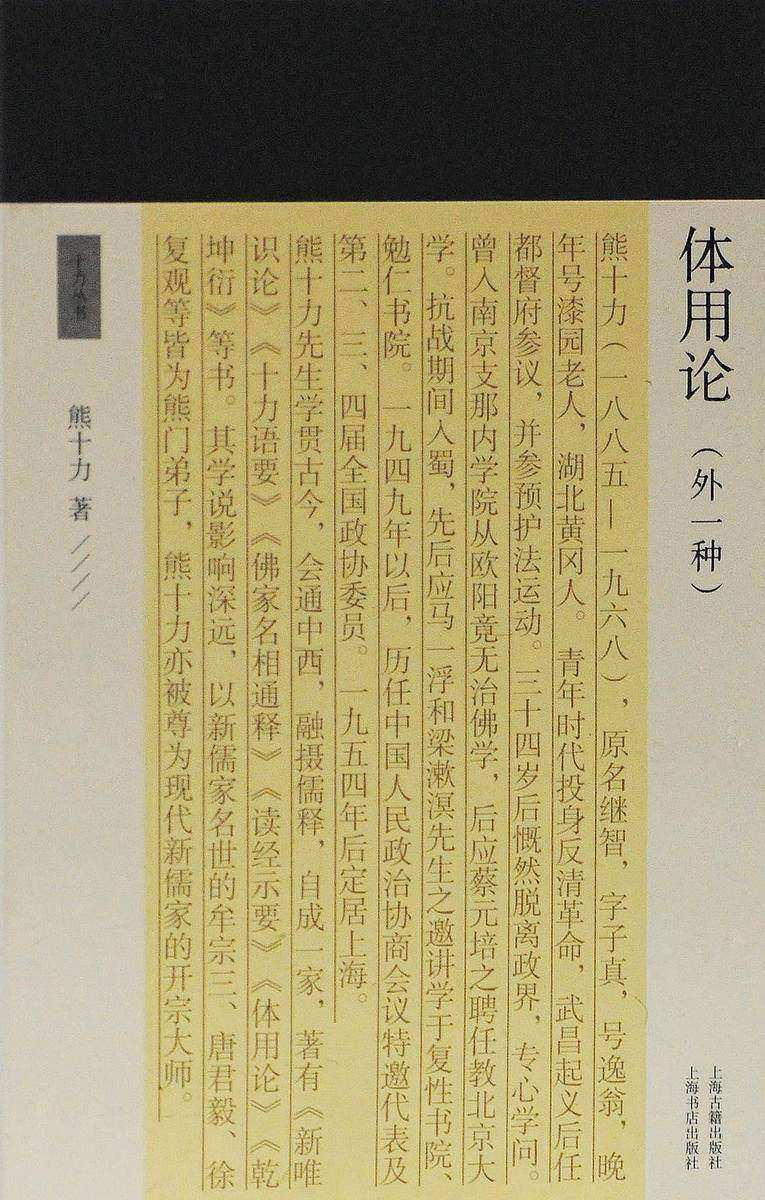 体用论(外一种)
上海古籍出版社
上海书店出版社
熊十力(一八八五—一九六八),原名继智,字子真,号逸翁,晚
年号漆园老人,湖北黄冈人。青年时代投身反清革命,武昌起义后任
都督府参议,并参预护法运动。三十四岁后慨然脱离政界,专心学问。
曾入南京支那内学院从欧阳竟无治佛学,后应蔡元培之聘任教北京大
学。抗战期间入蜀,先后应马一浮和梁漱溟先生之邀讲学于复性书院、
勉仁书院。一九四九年以后,历任中国人民政治协商会议特邀代表及
第二、三、四届全国政协委员。一九五四年后定居上海。
熊十力先生学贯古今,会通中西,融摄儒释,自成一家,著有《新唯
识论》《十力语要》《佛家名相通释》《读经示要》《体用论》《乾
坤衍》等书。其学说影响深远,以新儒家名世的牟宗三、唐君毅、徐
复观等皆为熊门弟子,熊十力亦被尊为现代新儒家的开宗大师。
十力丛书
熊十力 著////